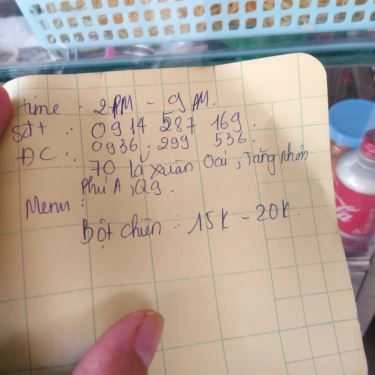 time : 2 PM - 9 PM.
Sđt : 0914 287 169.
0936. 299 536.
ĐC : 70 lã xuân Oai, Tăng nhơn
Phú A, Q9.
Menu :
Bột chiên : 15K - 20K.